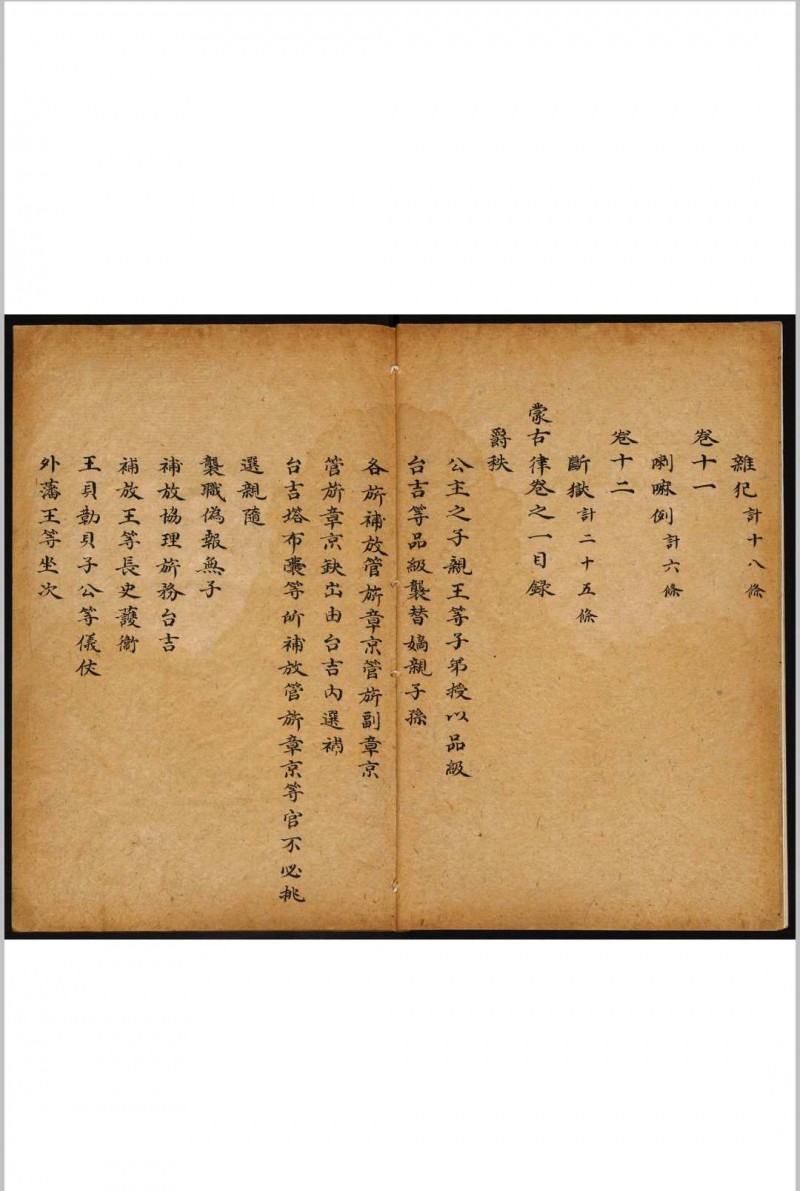 雜犯計十八條
卷十一
喇嘛例計六條
卷十二
斷獄計二十五條
蒙古律卷之一目録
爵秩
公主之子親王等子弟授以品級
台吉等品級襲替嫡親子孫
各旂補放管旂章京管旂副章京
管旂章京缺出由台吉內選補
台吉塔布囊等所補放管旂章京等官不必挑
選親隨
襲職偽報無子
補放協理旂務台吉
補放王等長史護衛
王貝勒貝子公等儀仗
外藩王等坐次